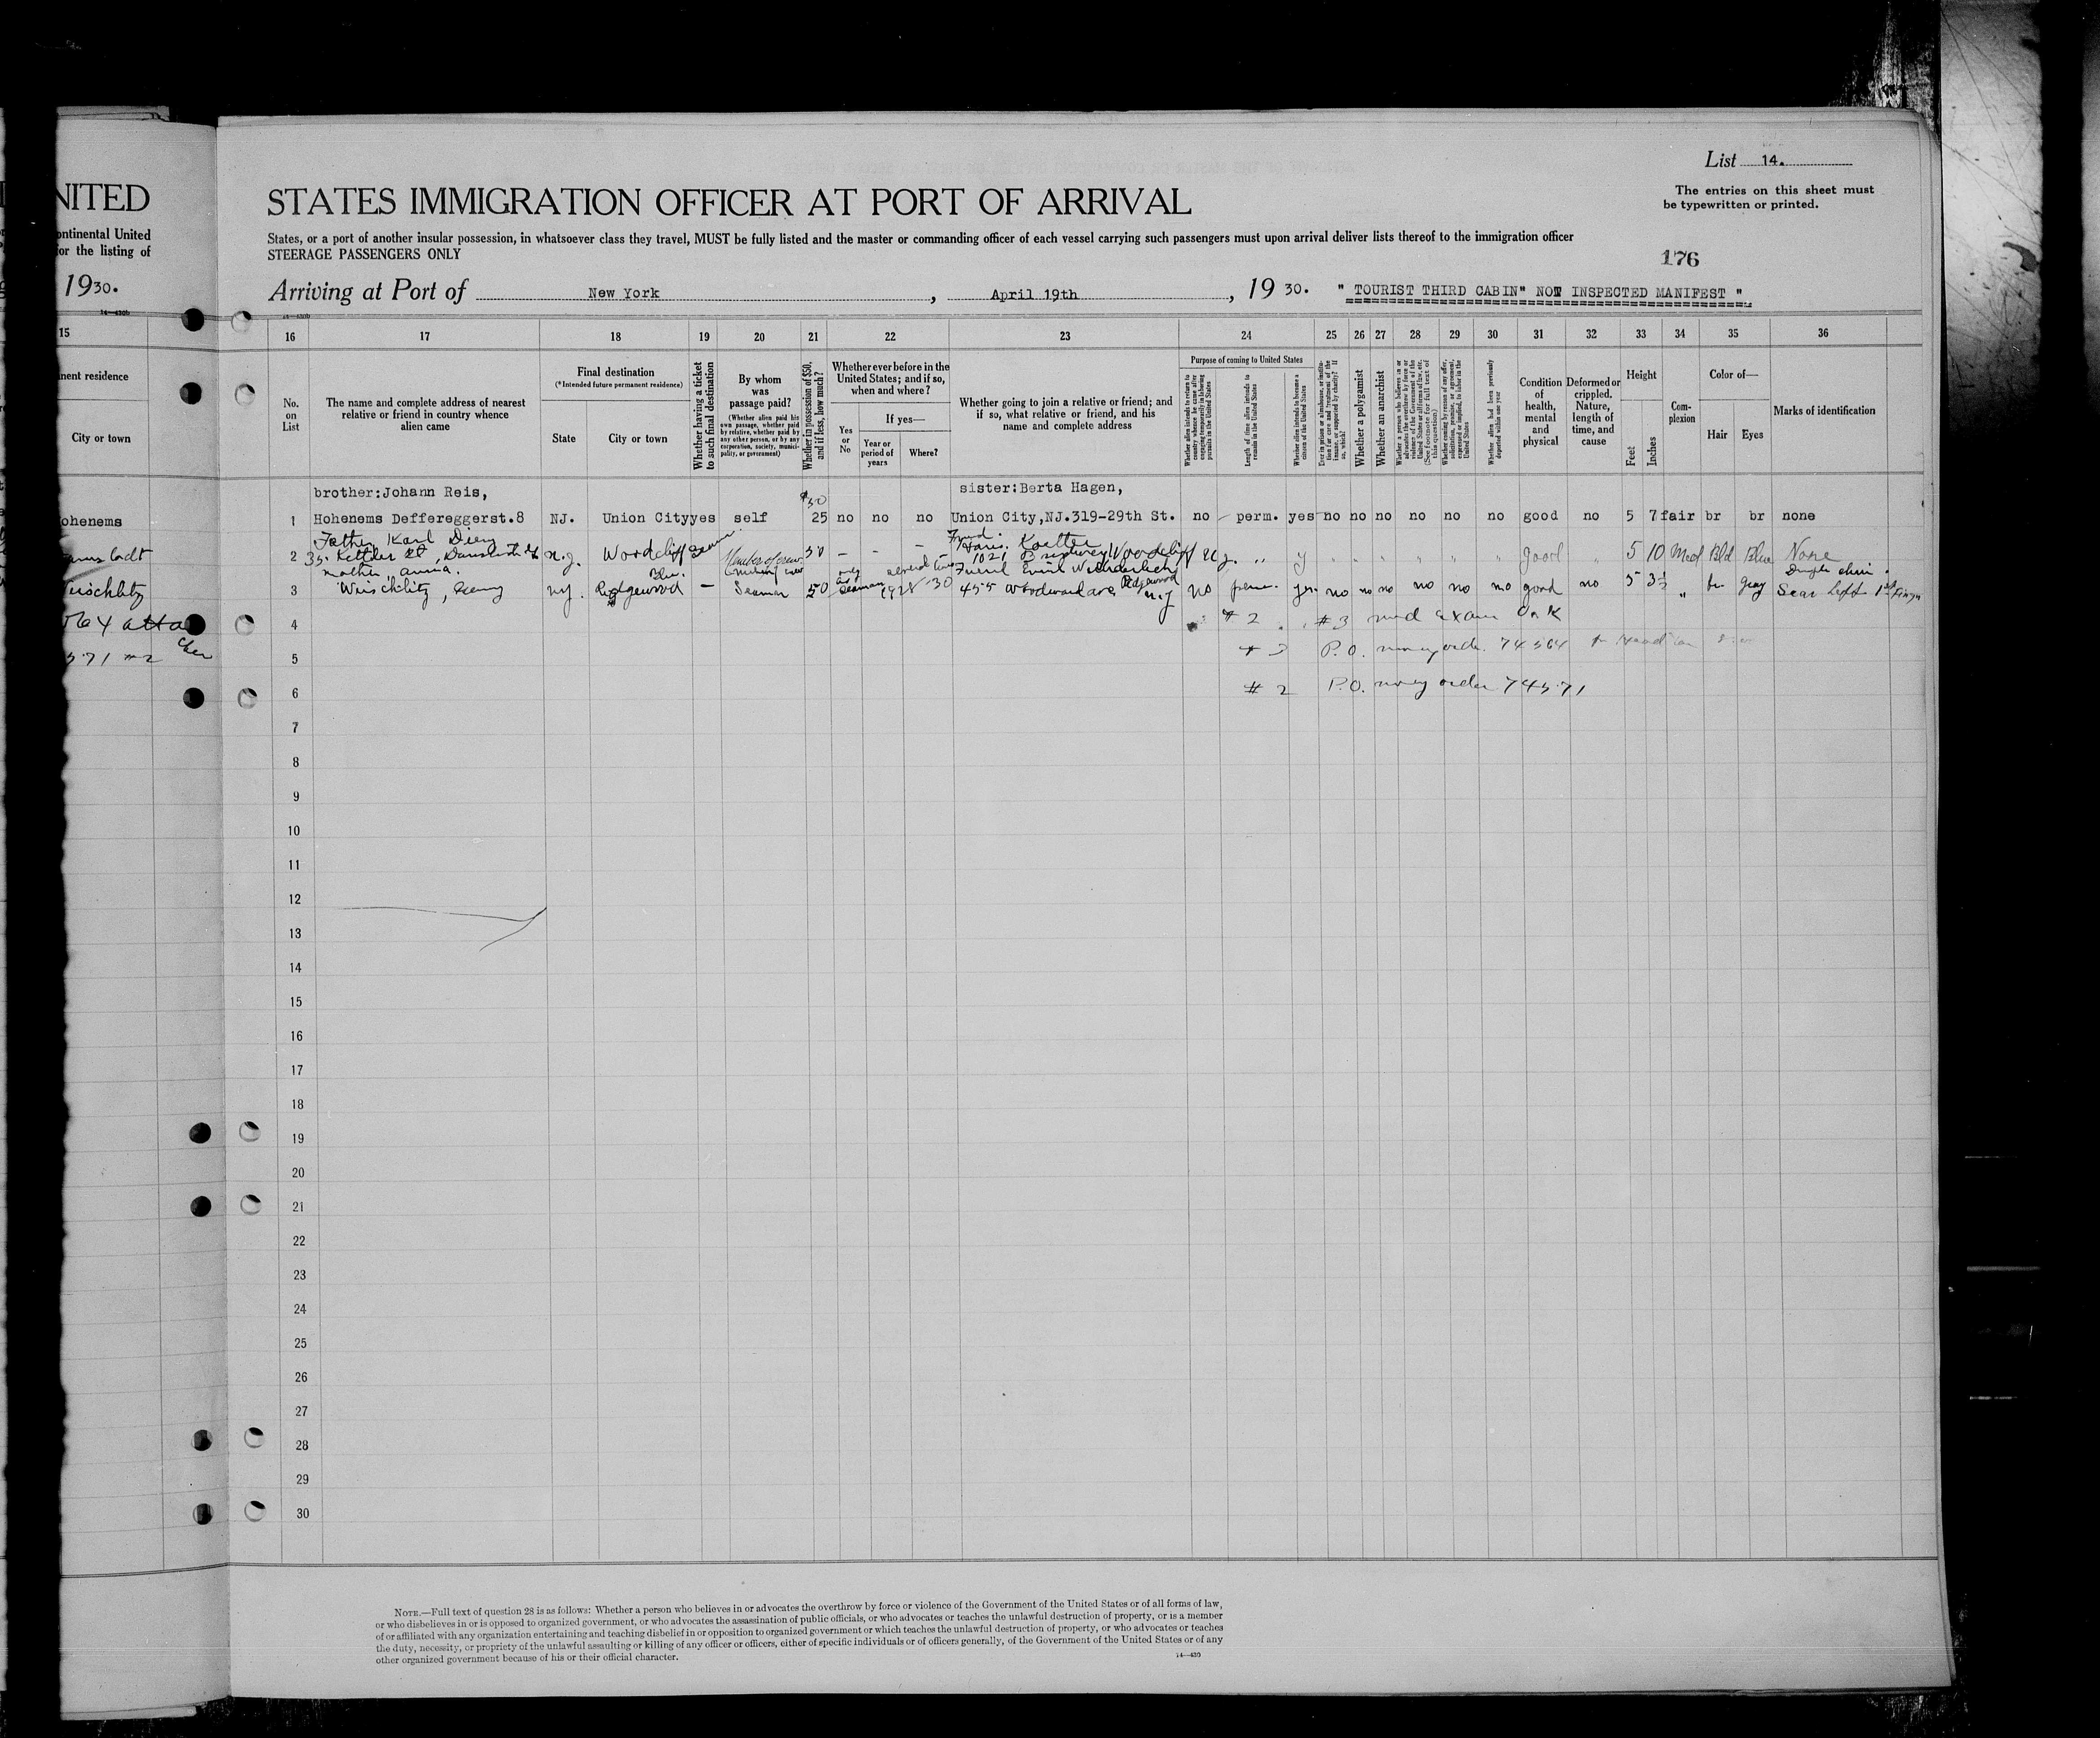 List 14.
The entries on this sheet must
be typewritten or printed.
176
NITED
ontinental United
or the listing of
1930.
15
nent residence
City or town
ohenems
STATES IMMIGRATION OFFICER AT PORT OF ARRIVAL
States, or a port of another insular possession, in whatsoever class they travel, MUST be fully listed and the master or commanding officer of each vessel carrying such passengers must upon arrival deliver lists thereof to the immigration officer
STEERAGE PASSENGERS ONLY
Arriving at Port of New York, April 19th, 19 30. " TOURIST THIRD CABIN" NOT INSPECTED MANIFEST "
16 17 18 19 20 21 22 23 24 25 26 27 28 29 30 31 32 33 34 35 36
No. on List
The name and complete address of nearest relative or friend in country whence alien came
Final destination
(*Intended future permanent residence)
State
City or town
Whether having a ticket to such final destination
By whom was passage paid?
(Whether alien paid his own passage, whether paid by relative, whether paid by any other person, or by any corporation, society, municipality, or government)
Whether in possession of $50, and if less, how much?
Whether ever before in the United States; and if so, when and where?
Yes or No
If yes—
Year or period of years
Where?
Whether going to join a relative or friend; and if so, what relative or friend, and his name and complete address
Purpose of coming to United States
Whether alien intends to return to country whence he came after engaging temporarily in laboring pursuits in the United States
Length of time alien intends to remain in the United States
Whether alien intends to become a citizen of the United States
Whether a polygamist
Whether an anarchist
Whether alien had been previously deported within one year
Condition of health, mental and physical
Deformed or crippled. Nature, length of time, and cause
Height
Feet
Inches
Com-plexion
Color of—
Hair
Eyes
Marks of identification
brother:Johann Reis, $50 sister:Berta Hagen,
1 Hohenems Deffereggerst.8 NJ. Union City yes self 25 no no no Union City,NJ.319-29th St. no perm. yes no no no no no no good no 5 7 fair br br none
Father Karl Friend
2 35 Kettler St N.J. Woodcliff 50 - - - 1021 Woodcliff N.J. " y good 5 10 Med Bld Blue None
mother, anna. Friend Emil Wunderlich
3 N.Y. Ridgewood — Seaman 50 seaman 1928-30 455 Woodward ave Ridgewood N.Y no perm. yes no no no no no no good no 5 3½ " br gray Scar left 1st finger
4 #2 #3 med exam O.K
5 P.O. money order 74564
6 #2 P.O. money order 74571
7
8
9
10
11
12
13
14
15
16
17
18
19
20
21
22
23
24
25
26
27
28
29
30
NOTE.—Full text of question 28 is as follows: Whether a person who believes in or advocates the overthrow by force or violence of the Government of the United States or of all forms of law,
or who disbelieves in or is opposed to organized government, or who advocates the assassination of public officials, or who advocates or teaches the unlawful destruction of property, or is a member
of or affiliated with any organization entertaining and teaching disbelief in or opposition to organized government or which teaches the unlawful destruction of property, or who advocates or teaches
the duty, necessity, or propriety of the unlawful assaulting or killing of any officer or officers, either of specific individuals or of officers generally, of the Government of the United States or of any
other organized government because of his or their official character.
14—430